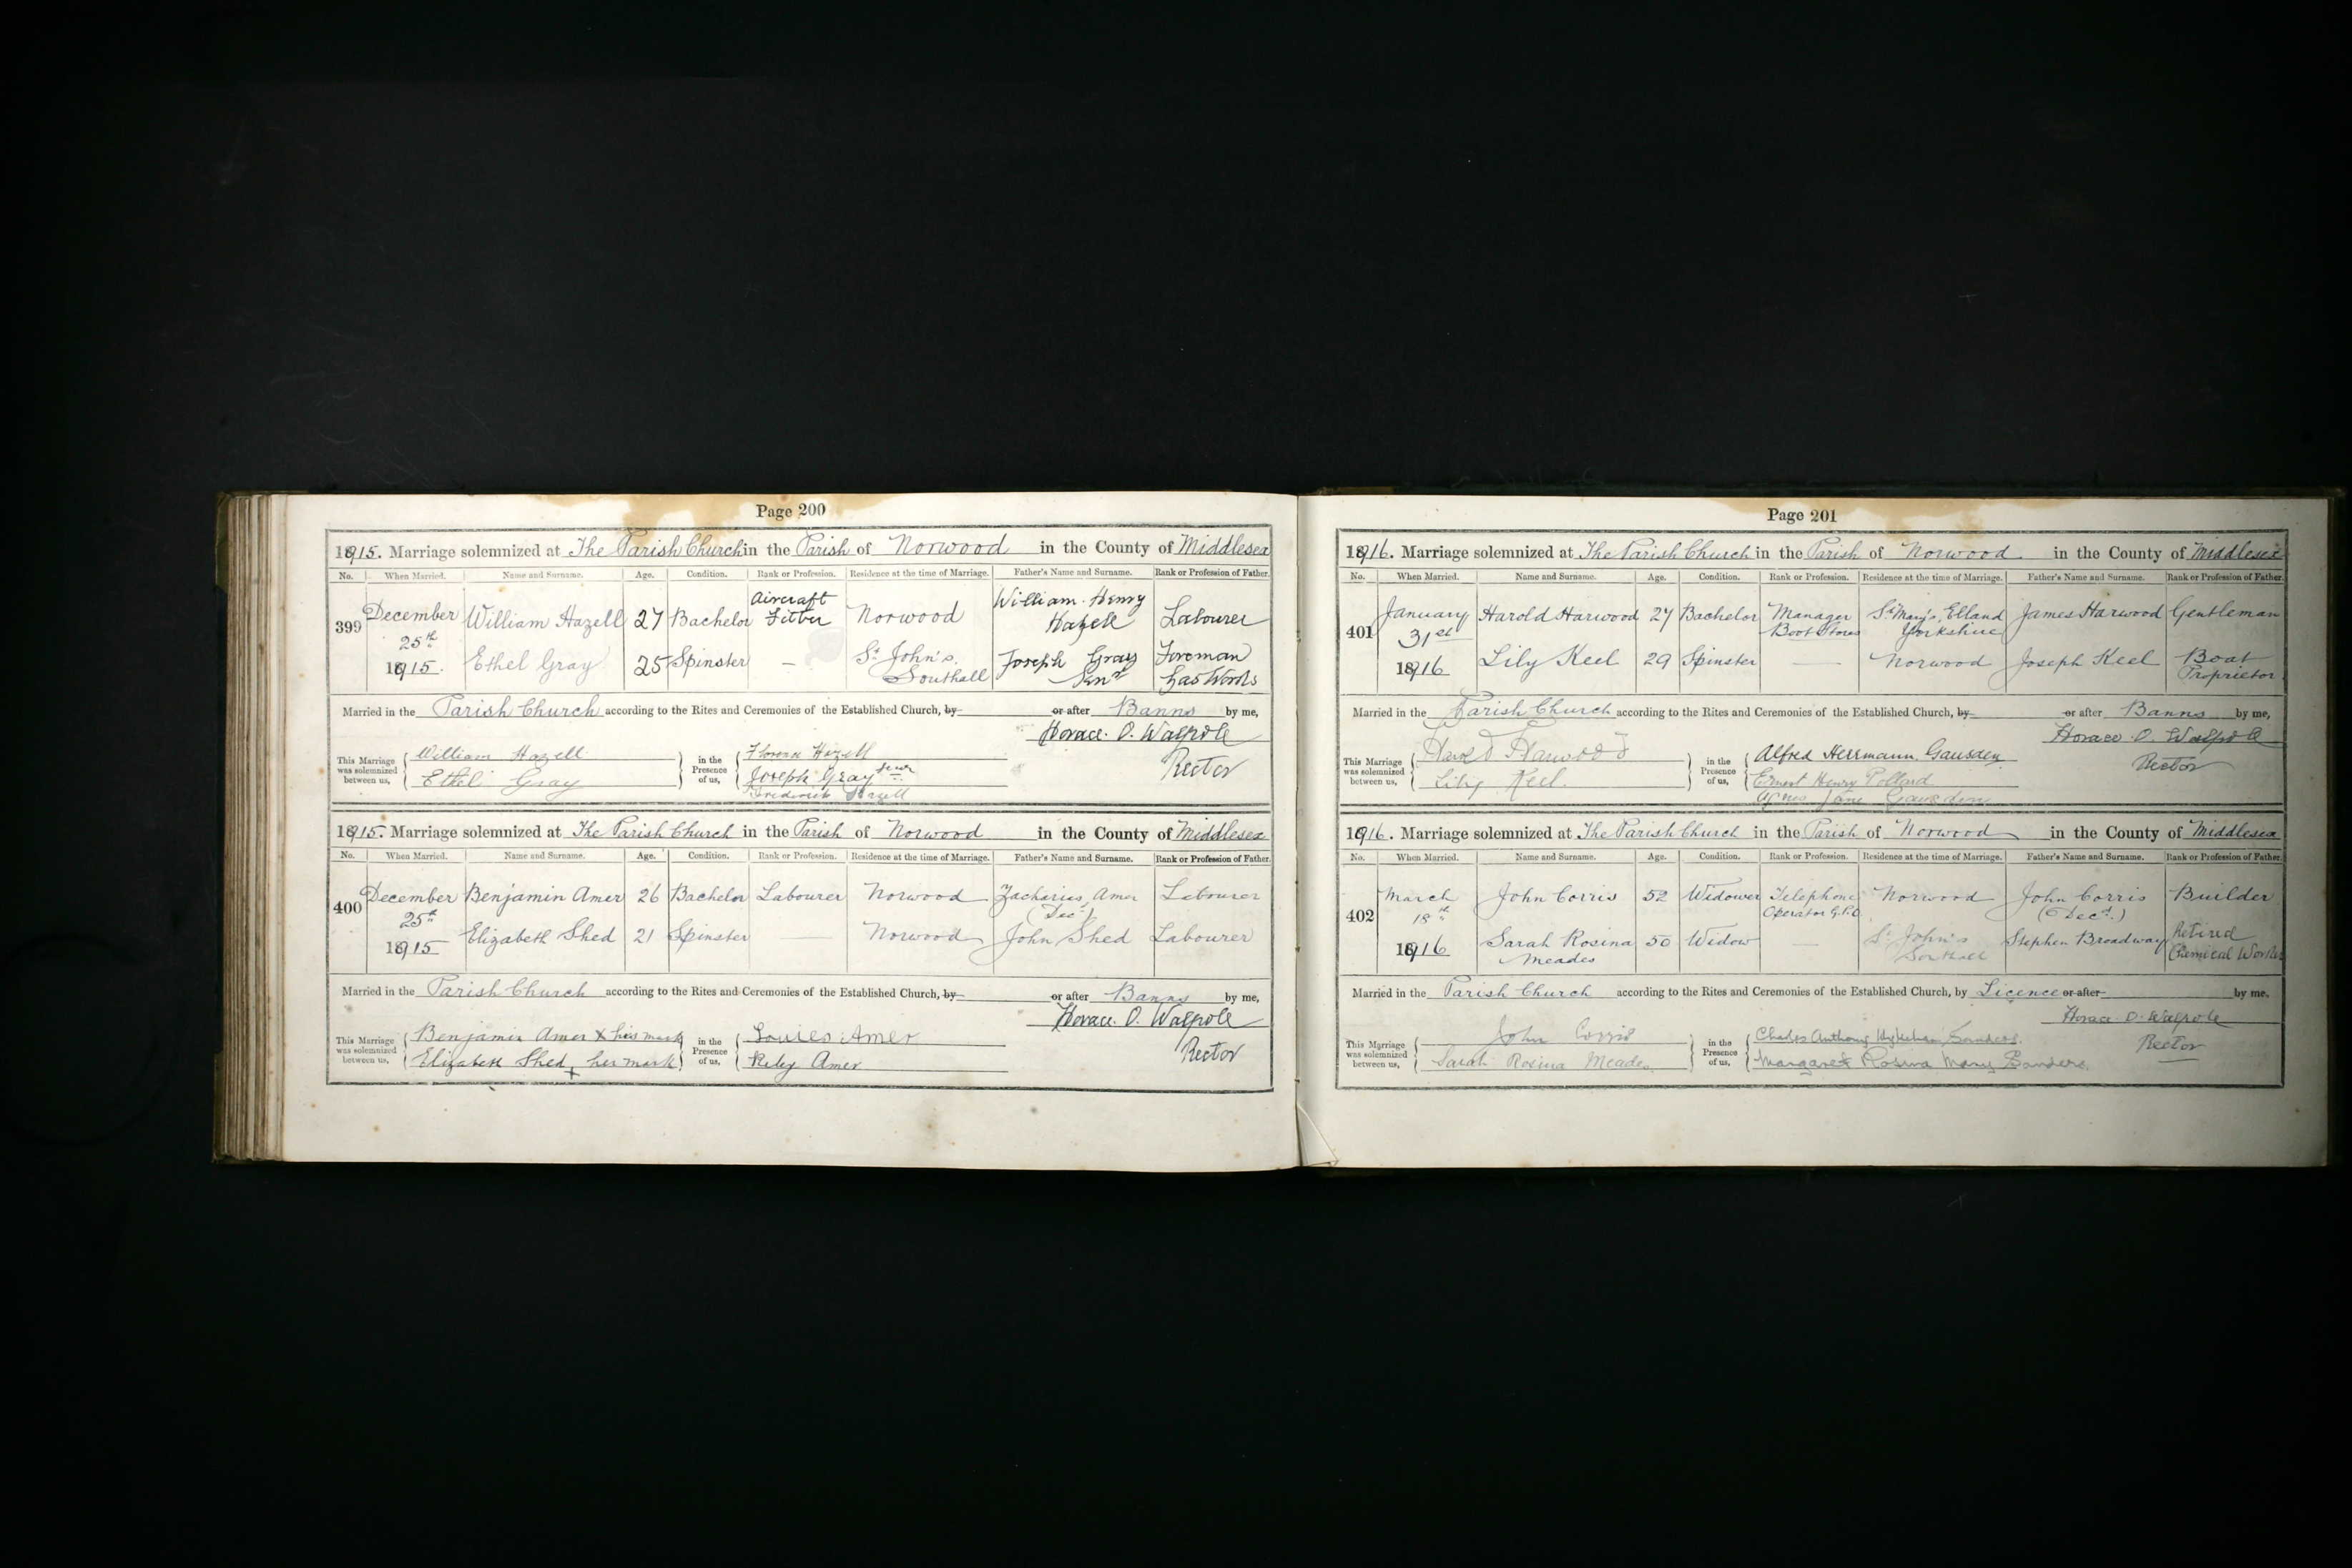 Page 200
1915. Marriage solemnized at The Parish Church in the Parish of Norwood in the County of Middlesex
No. When Married. Name and Surname. Age. Condition. Rank or Profession. Residence at the time of Marriage. Father's Name and Surname. Rank or Profession of Father.
399 December 25th 1915. William Hazell 27 Bachelor Aircraft Fitter Norwood William Henry Hazell Labourer
Ethel Gray 25 Spinster — St John's, Southall Joseph Gray Senr Foreman Gas Works
Married in the Parish Church according to the Rites and Ceremonies of the Established Church, by or after Banns by me,
Horace. O. Walpole
Rector
This Marriage was solemnized between us, William Hazell
Ethel Gray
in the Presence of us, Florence Hazell
Joseph Gray Senr
Frederick Hazell
1915. Marriage solemnized at The Parish Church in the Parish of Norwood in the County of Middlesex
No. When Married. Name and Surname. Age. Condition. Rank or Profession. Residence at the time of Marriage. Father's Name and Surname. Rank or Profession of Father.
400 December 25th 1915 Benjamin Amer 26 Bachelor Labourer Norwood Zacharias Amer (Decd) Labourer
Elizabeth Shed 21 Spinster — Norwood John Shed Labourer
Married in the Parish Church according to the Rites and Ceremonies of the Established Church, by or after Banns by me,
Horace. O. Walpole
Rector
This Marriage was solemnized between us, Benjamin Amer X his mark
Elizabeth Shed X her mark
in the Presence of us, Louies Amer
Riley Amer
Page 201
1916. Marriage solemnized at The Parish Church in the Parish of Norwood in the County of Middlesex
No. When Married. Name and Surname. Age. Condition. Rank or Profession. Residence at the time of Marriage. Father's Name and Surname. Rank or Profession of Father.
401 January 31st 1916 Harold Harwood 27 Bachelor Manager Boot Stores St Mary's, Elland Yorkshire James Harwood Gentleman
Lily Keel 29 Spinster — Norwood Joseph Keel Boat Proprietor
Married in the Parish Church according to the Rites and Ceremonies of the Established Church, by or after Banns by me,
Horace. O. Walpole
Rector
This Marriage was solemnized between us, Harold Harwood
Lily Keel.
in the Presence of us, Alfred Herrmann Gausden
Ernest Henry Pollard
Agnes Jane Gausden
1916. Marriage solemnized at The Parish Church in the Parish of Norwood in the County of Middlesex
No. When Married. Name and Surname. Age. Condition. Rank or Profession. Residence at the time of Marriage. Father's Name and Surname. Rank or Profession of Father.
402 March 18th 1916 John Corris 52 Widower Telephone Operator G.P.O Norwood John Corris (Decd.) Builder
Sarah Rosina Meades 50 Widow — St John's Southall Stephen Broadway Retired Chemical Worker
Married in the Parish Church according to the Rites and Ceremonies of the Established Church, by Licence or after by me,
Horace. O. Walpole
Rector
This Marriage was solemnized between us, John Corris
Sarah Rosina Meades
in the Presence of us, Charles Anthony Sanders.
Margaret Rosina Mary Sanders.